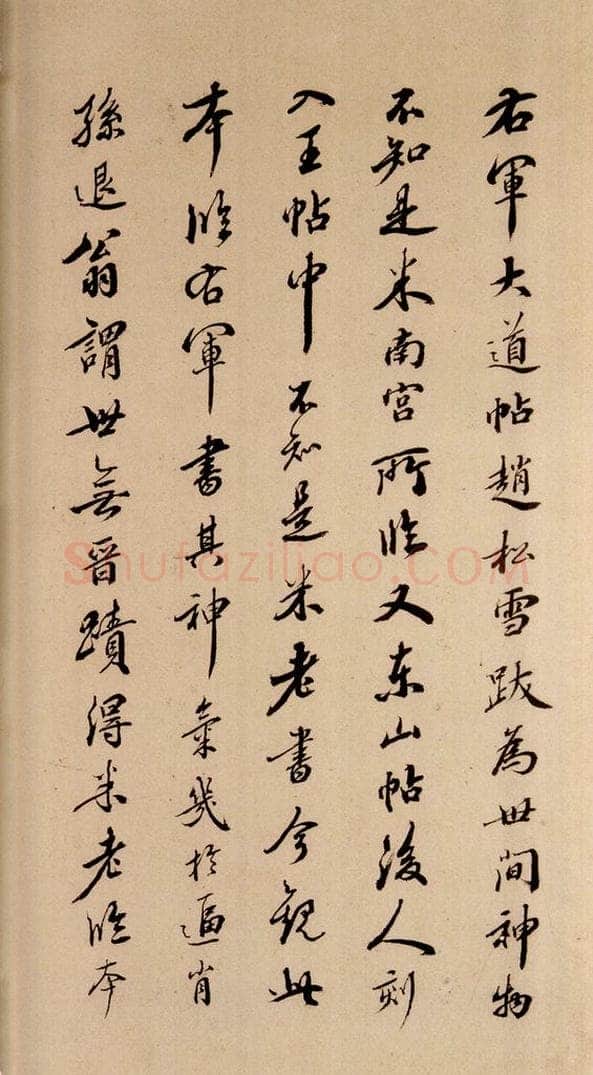 右軍大道帖趙松雪跋為世間神物
不知是米南宮所臨又東山帖後人刻
入王帖中不知是米老書今觀此
本臨右軍書其神氣幾於逼肖
孫退翁謂世無晉蹟得米老臨本
Shufaziliao.COM